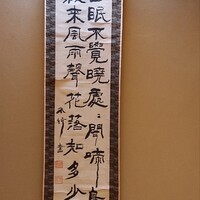 眠不覺曉處〻聞啼鳥
夜来風雨聲花落知多少